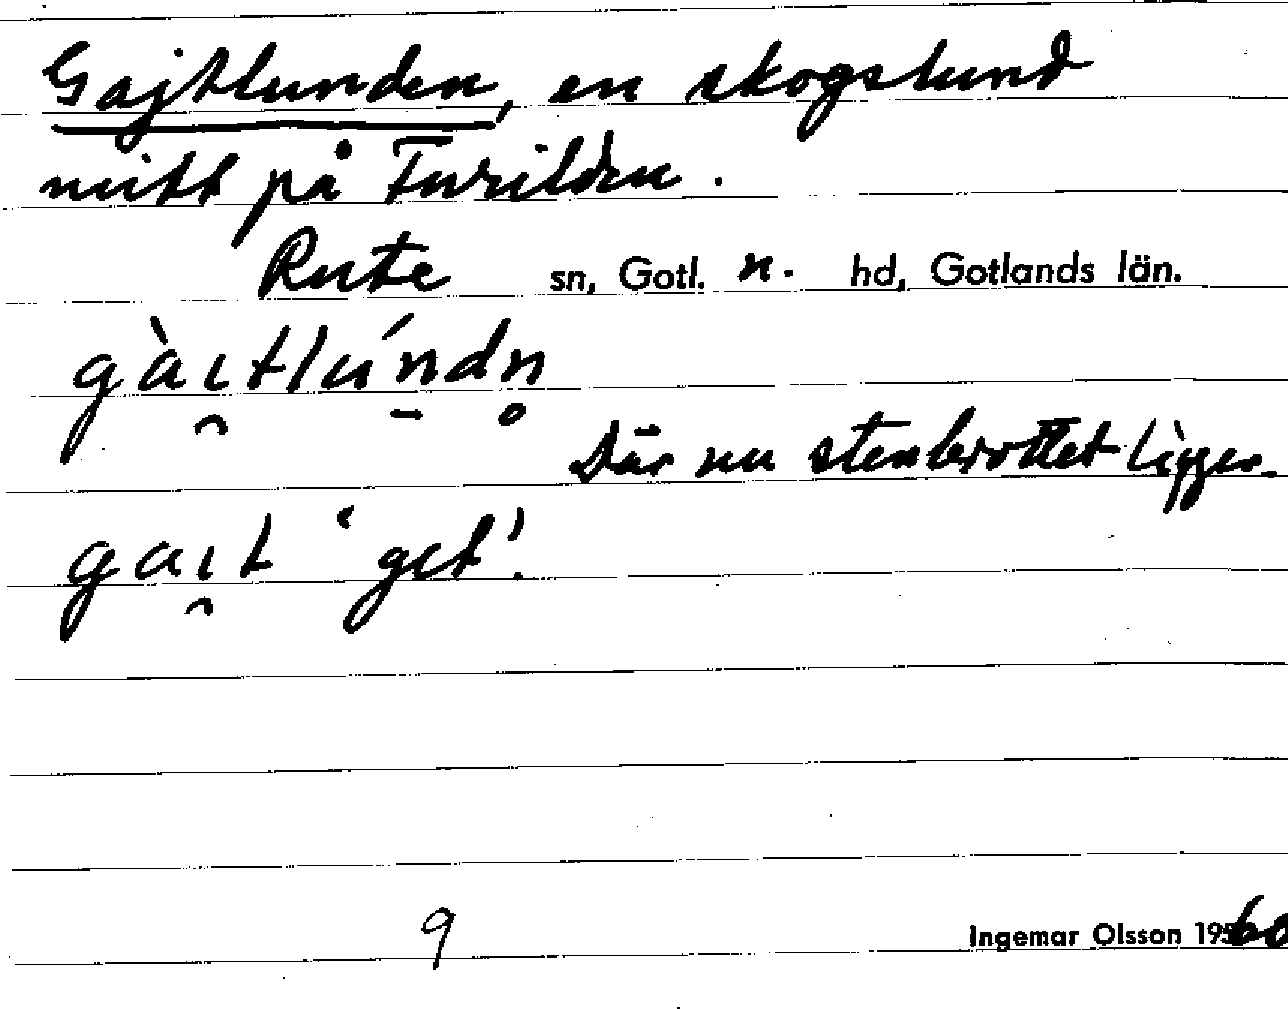 Gajtlunden, en skogslund
mitt på Furilden.
Rute sn, Gotl. n. hd, Gotlands län.
gàı̯tlún̠dn̥
Där nu stenbrottet ligger.
gaı̯t ‘get’.
9
Ingemar Olsson 1960